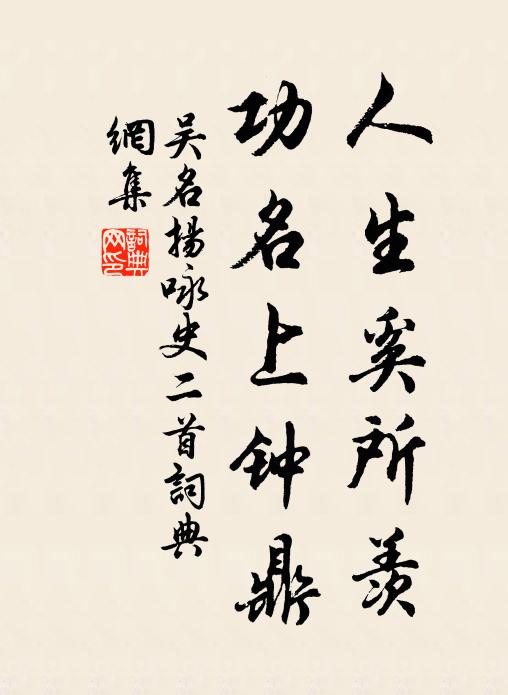 人生奚所羡
功名上钟鼎
吴名揚咏史二首詞典
網集
詞典
网印